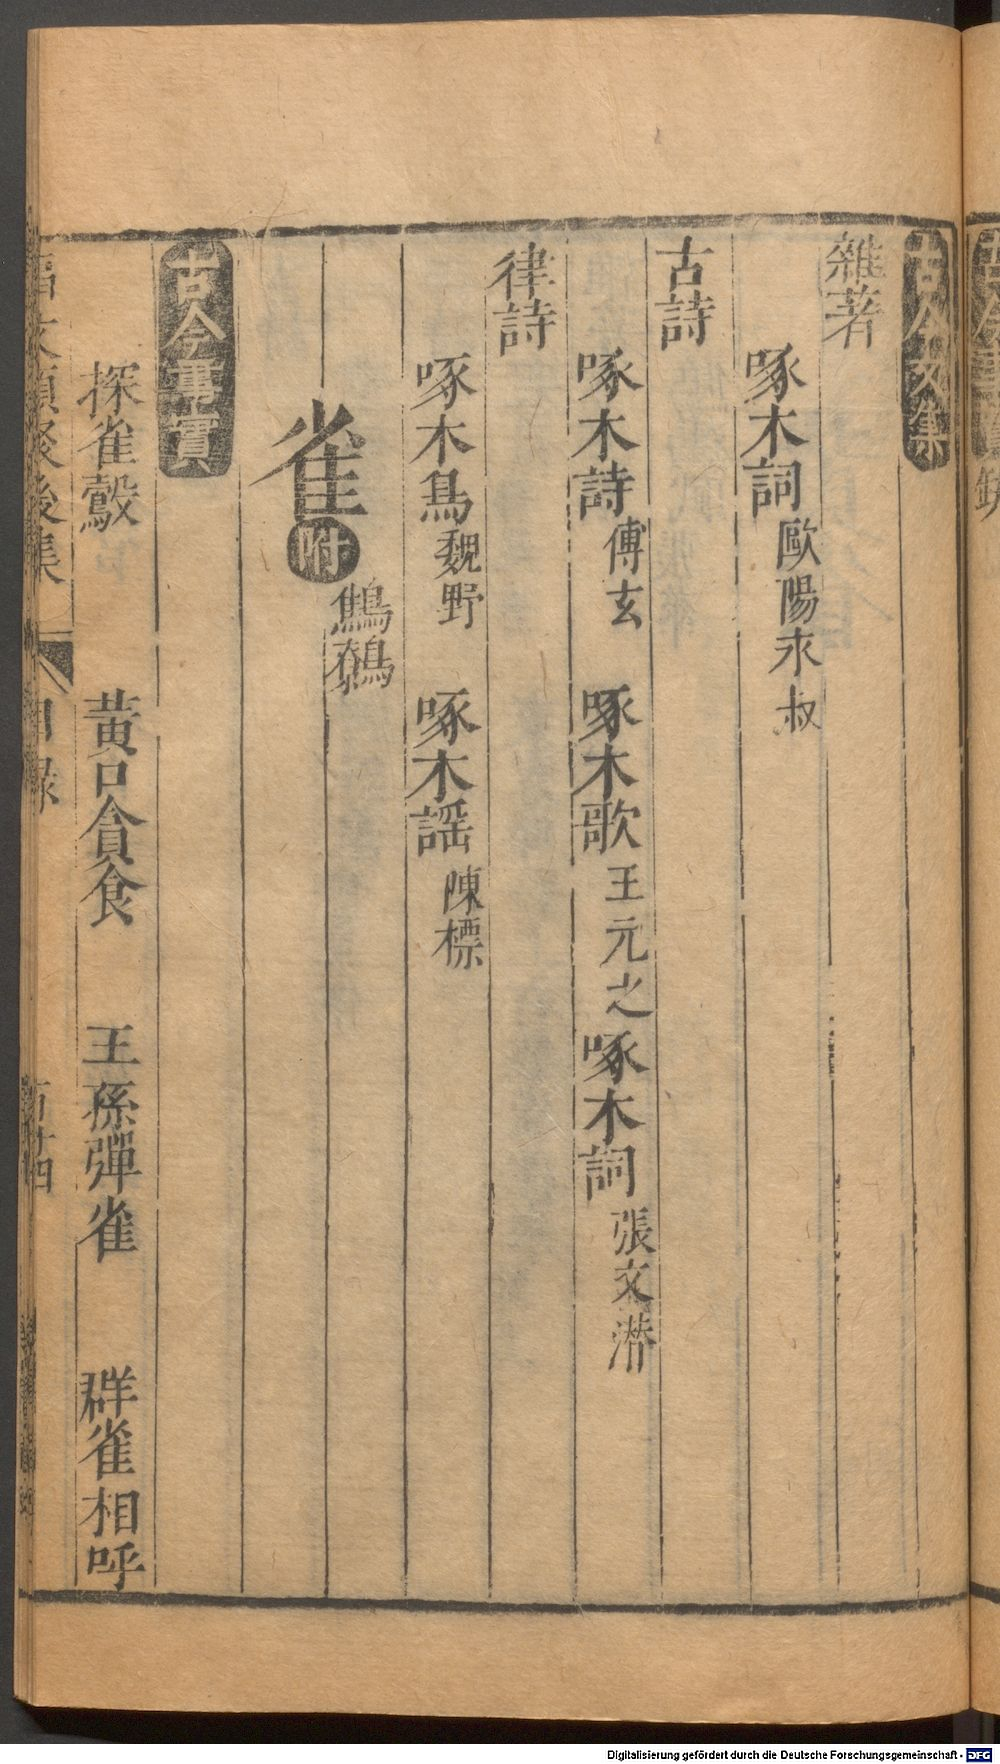 古今文集
雜著
啄木詞 歐陽永叔
古詩
啄木詩 傅玄 啄木歌 王元之 啄木詞 張文潛
律詩
啄木鳥 魏野 啄木謡 陳標
雀 附 鷦鷯
古今事實
探雀鷇 黃口貪食 王孫彈雀 群雀相呼
文類聚後集 目録
Digitalisierung gefördert durch die Deutsche Forschungsgemeinschaft - DFG